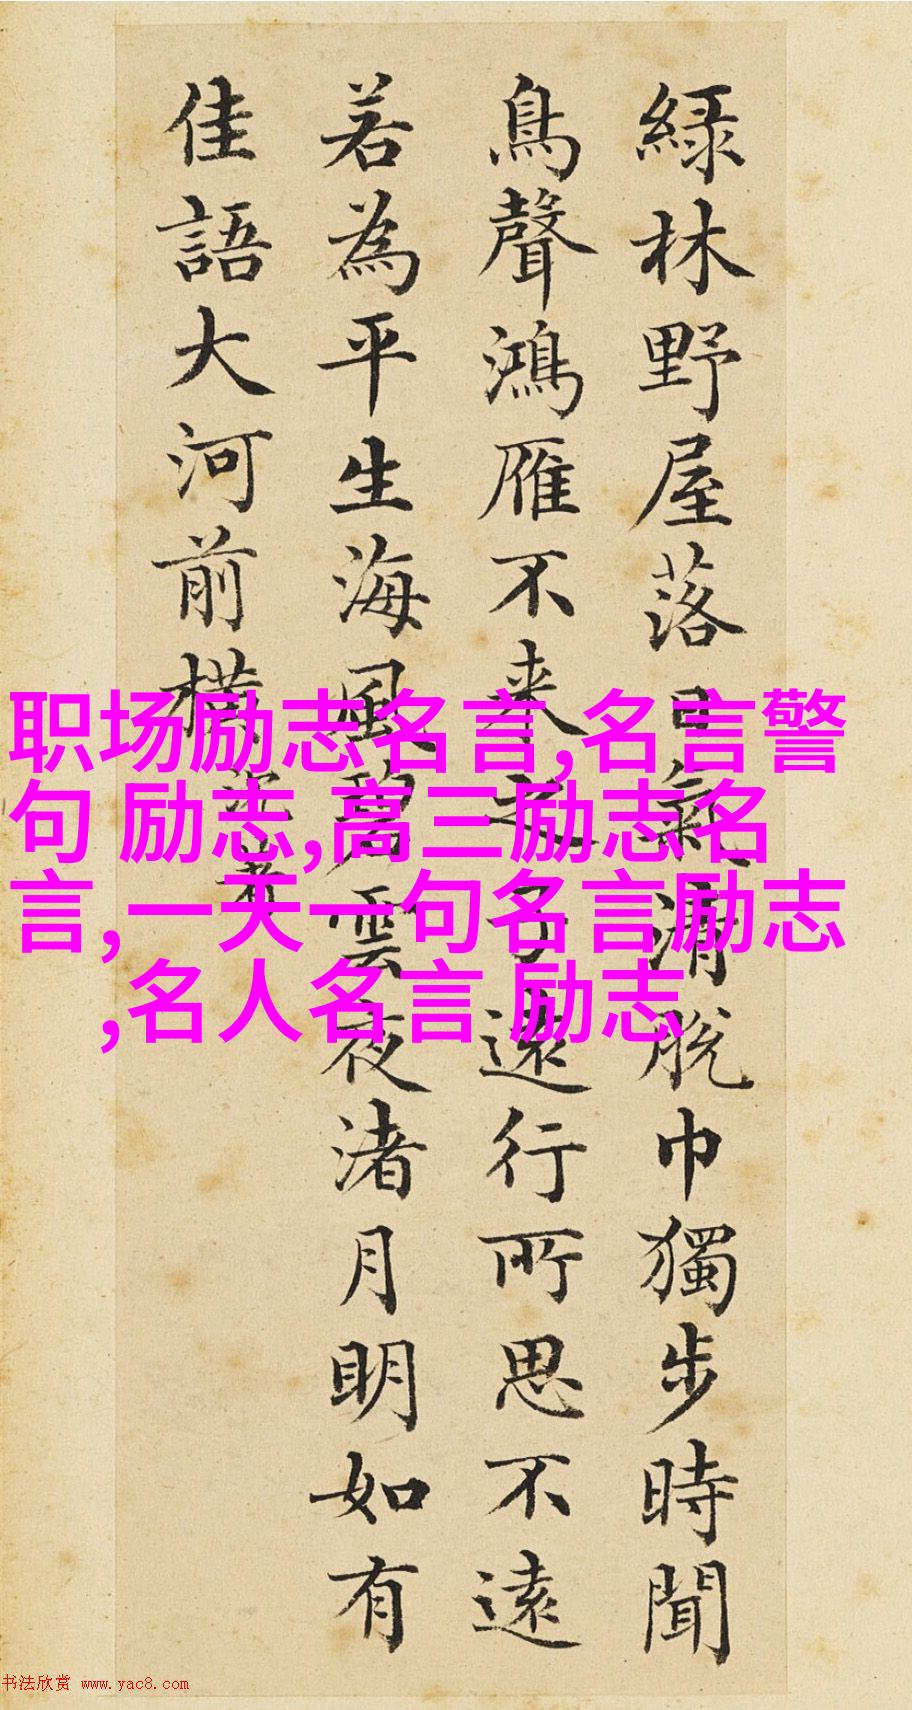 緑林野屋落日氣清脫巾獨步時聞
鳥聲鴻雁不来之子遠行所思不遠
若為平生海風碧雲夜渚月明如有
佳語大河前横
沈著
职场励志名言,名言警
句 励志,高三励志名
言,一天一句名言励志
,名人名言 励志
书法欣赏 www.yac8.com